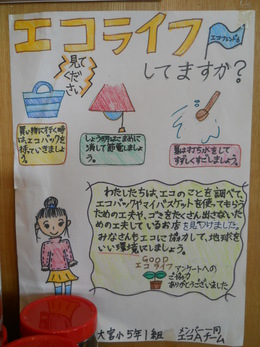 エコライフ
エコフレンドを
見て
ください
してますか?
買い物に行く時
は、エコバックを
持っていきまし
ょう。
しょう明はこまめに
消して節電しまし
ょう。
夏は打ち水をして
すずしくすごしましょう。
わたしたちは、エコのことを調べて
エコバックやマイバスケットを使ってもらう
ための工夫や、ゴミをたくさん出さない
ための工夫しているお店を見つけました。
みなさんもエコに協力して、地球を
いい環境にしましょう。
GOOD
エコライフ
アンケートへの
ご協力
ありがとうございました
大宮小5年1組
メンバー一同
エコAチーム